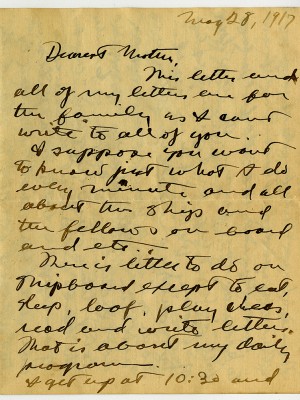 May 28, 1917
Dearest Mother,
This letter and
all of my letters are for
the family as I can't
write to all of you.
I suppose you want
to know just what I do
every minute and all
about the ship and
the fellows on board
and etc.
There is little to do on
shipboard except to eat,
sleep, loaf, play chess,
read and write letters.
That is about my daily
program.
I get up at 10:30 and